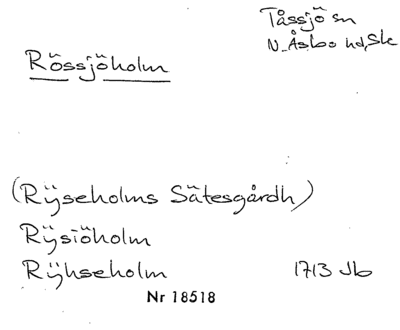 Tåssjö sn
N. Åsbo hd, Sk
Rössjöholm
(Rÿseholms Sätesgårdh)
Rÿsiöholm
Rÿhseholm 1713 Jb
Nr 18518